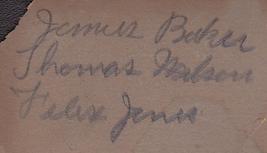 James Baker
Thomas Wilson
Felix Jones